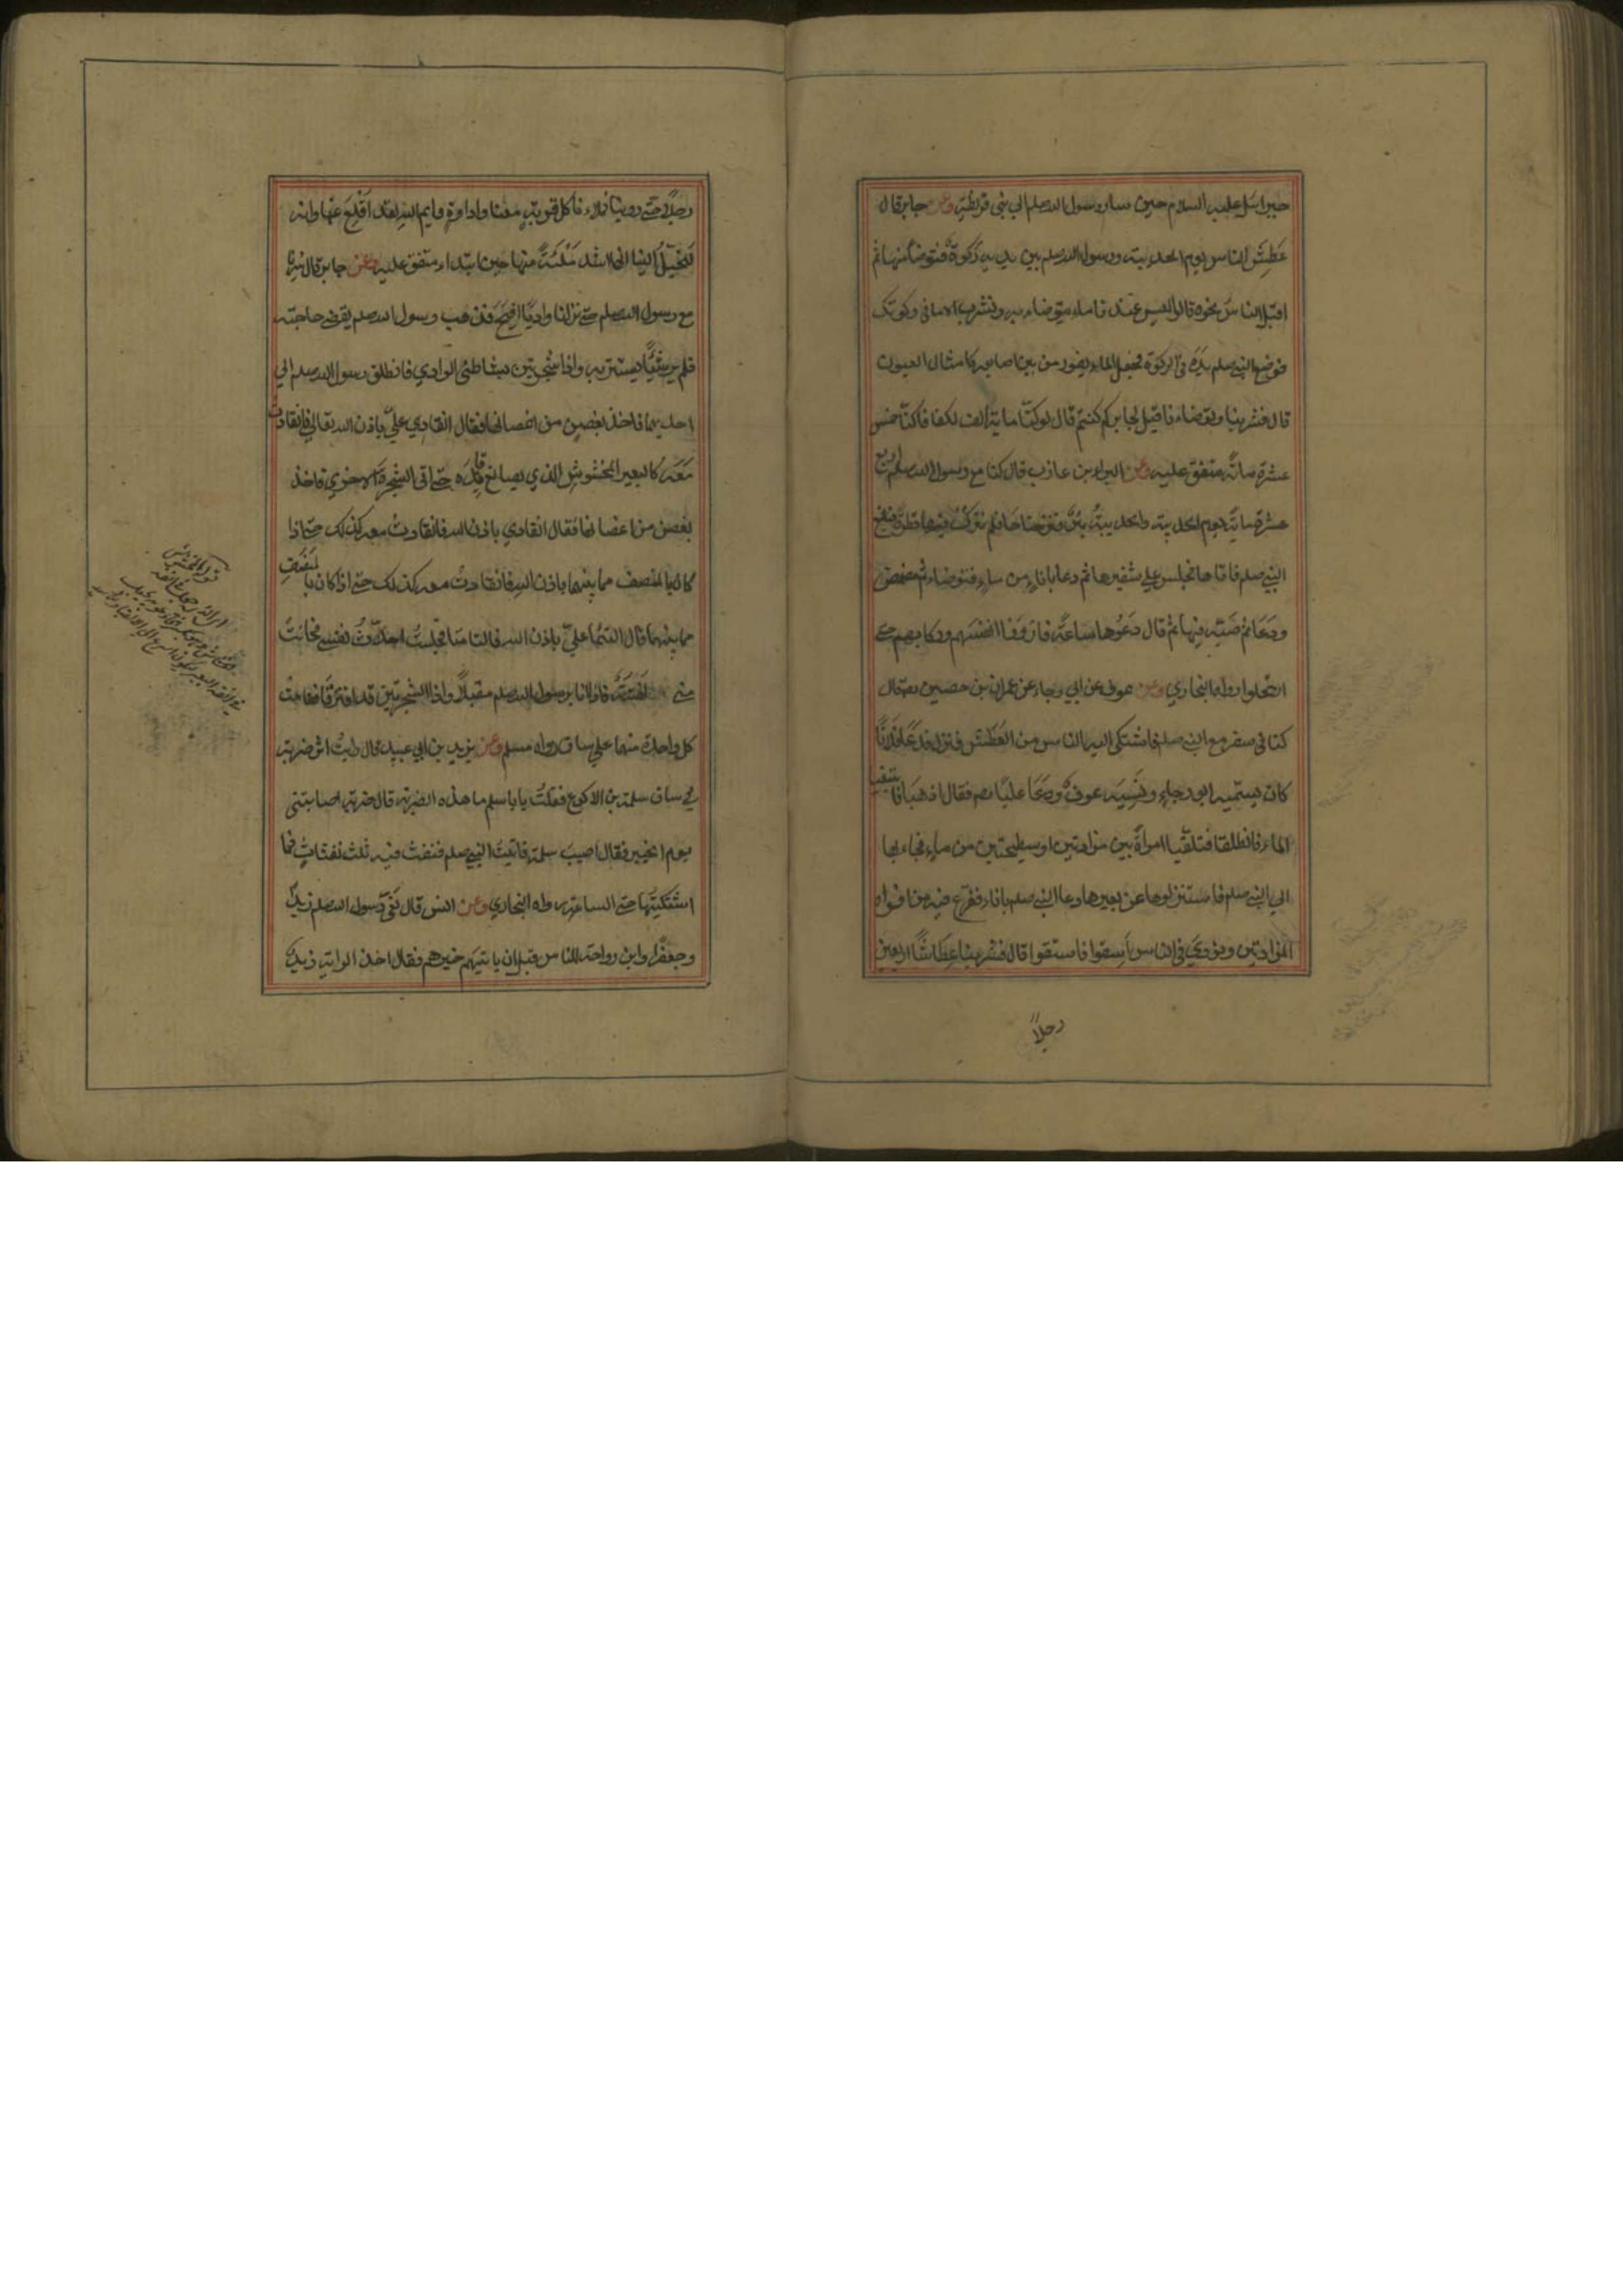 جبرائيل عليه السلام حين سار رسول الله صلم الي بني قريظة وعن جابر قال
عَطِشَ الناس يوم الحديبية ورسول الله صلم بين يديه ركوة فتوضأ منها ثم
اقبل الناس نحوه قالوا ليس عندنا ماء نتوضاء به ونشرب الا ما في ركوتك
فوضع النبي صلم يده في الركوة فجعل الماء يفور من بين اصابعه كامثال العيون
قال فشربنا وتوضاء نا قيل لجابر كم كنتم قال لو كنا مائة الف لكفانا كنا خمس
عشرة مائة متفق عليه وعن البراء بن عازب قال كنا مع رسول الله صلم اربع
عشرة مائة يوم الحديبية والحديبية بئر فنزحناها فلم نترك فيها قطرة فبلغ
النبي صلم فاتاها فجلس علي شفيرها ثم دعا باناء من ماء فتوضاء ثم مضمض
ودعا ثم صبه فيها ثم قال دعوها ساعة فارووا انفسهم وركابهم حتي
ارتحلوا رواه البخاري وعن عوف عن ابي رجاء عن عمران بن حصين قال
كنا في سفر مع النبي صلم فاشتكي اليه الناس من العطش فنزل فدعا فلانا
كان يسميه ابو رجاء ونسيه عوف ودعا عليا فقال اذهبا فابتغيا
الماء فانطلقا فتلقيا امراة بين مزادتين او سطيحتين من ماء فجاءا بها
الي النبي صلم فاستنزلوها عن بعيرها ودعا النبي صلم باناء ففرغ فيه من افواه
المزادتين ونودي في الناس اسقوا فاستقوا قال فشربنا عطاشا اربعين
رجلاً
رجلا حتي روينا فملاء نا كل قربة معنا واداوة وايم الله لقد اقلع عنها وانه
ليخيل الينا انها اشد ملئة منها حين ابتداء متفق عليه وعن جابر قال سرنا
مع رسول الله صلم حتي نزلنا واديا افيح فذهب رسول الله صلم يقضي حاجته
فلم ير شيئا يستتر به واذا شجرتين بشاطئ الوادي فانطلق رسول الله صلم الي
احديهما فاخذ بغصن من اغصانها فقال انقادي علي باذن الله تعالي فانقادت
معه كالبعير المخشوش الذي يصانع قائده حتي اتي الشجرة الاخري فاخذ
بغصن من اغصانها فقال انقادي باذن الله فانقادت معه كذلك حتي اذا
كان بالمنصف مما بينهما باذن الله فانقادت معه كذلك حتي اذا كان بالمنصف
مما بينهما قال التئما علي باذن الله فالتامتا فجلست احدث نفسي فحانت
مني لفتة فاذا انا برسول الله صلم مقبلا واذا الشجرتين قد افترقتا فقامت
كل واحدة منهما علي ساق رواه مسلم وعن يزيد بن ابي عبيد قال رايت اثر ضربة
في ساق سلمة بن الاكوع فقلت يا با سلم ما هذه الضربة قال ضربة اصابتني
يوم الخيبر فقال اصيب سلمة فاتيت النبي صلم فنفث فيه ثلث نفثات فما
اشتكيتها حتي الساعة رواه البخاري وعن انس قال نعي رسول الله صلم زيدا
وجعفرا وابن رواحة للناس قبل ان ياتيهم خبرهم فقال اخذ الراية زيد